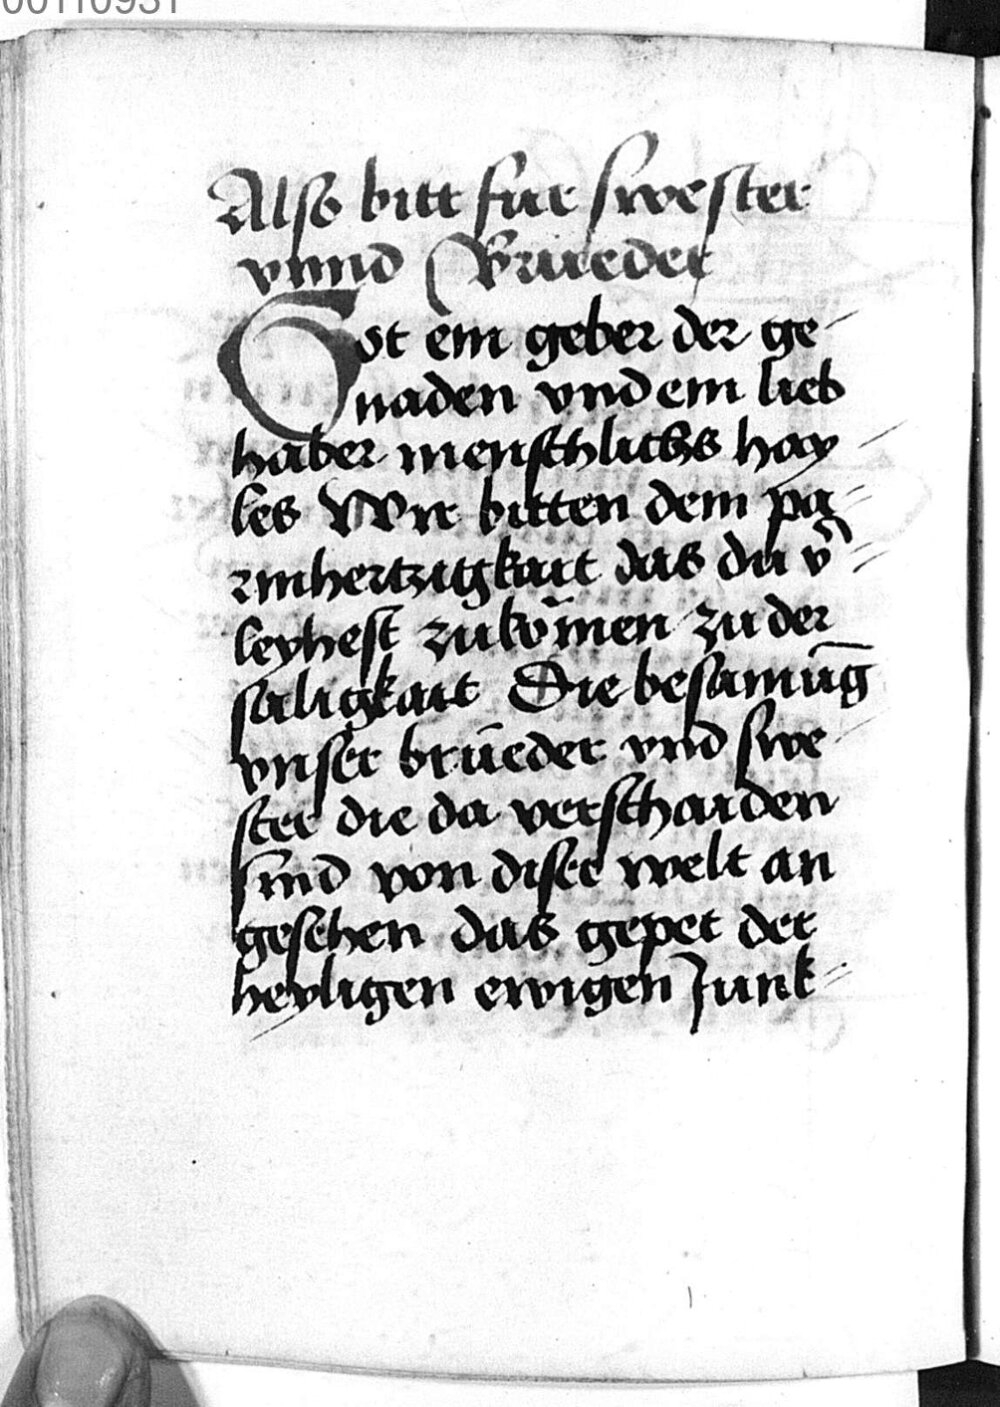 00110931
Also bitt fur swester
vnnd Brueder
Got ein geber der ge
naden vnd ein lieb
haber menschlichs hay
les Wir bitten dein pa
rmhertzigkait das du v̄
leyhest zukōmen zu der
saligkait Die besamūg
vnser brüeder vnd swe
ster die da verschaiden
sind von diser welt an
gesehen das gepet der
heyligen ewigen Junk